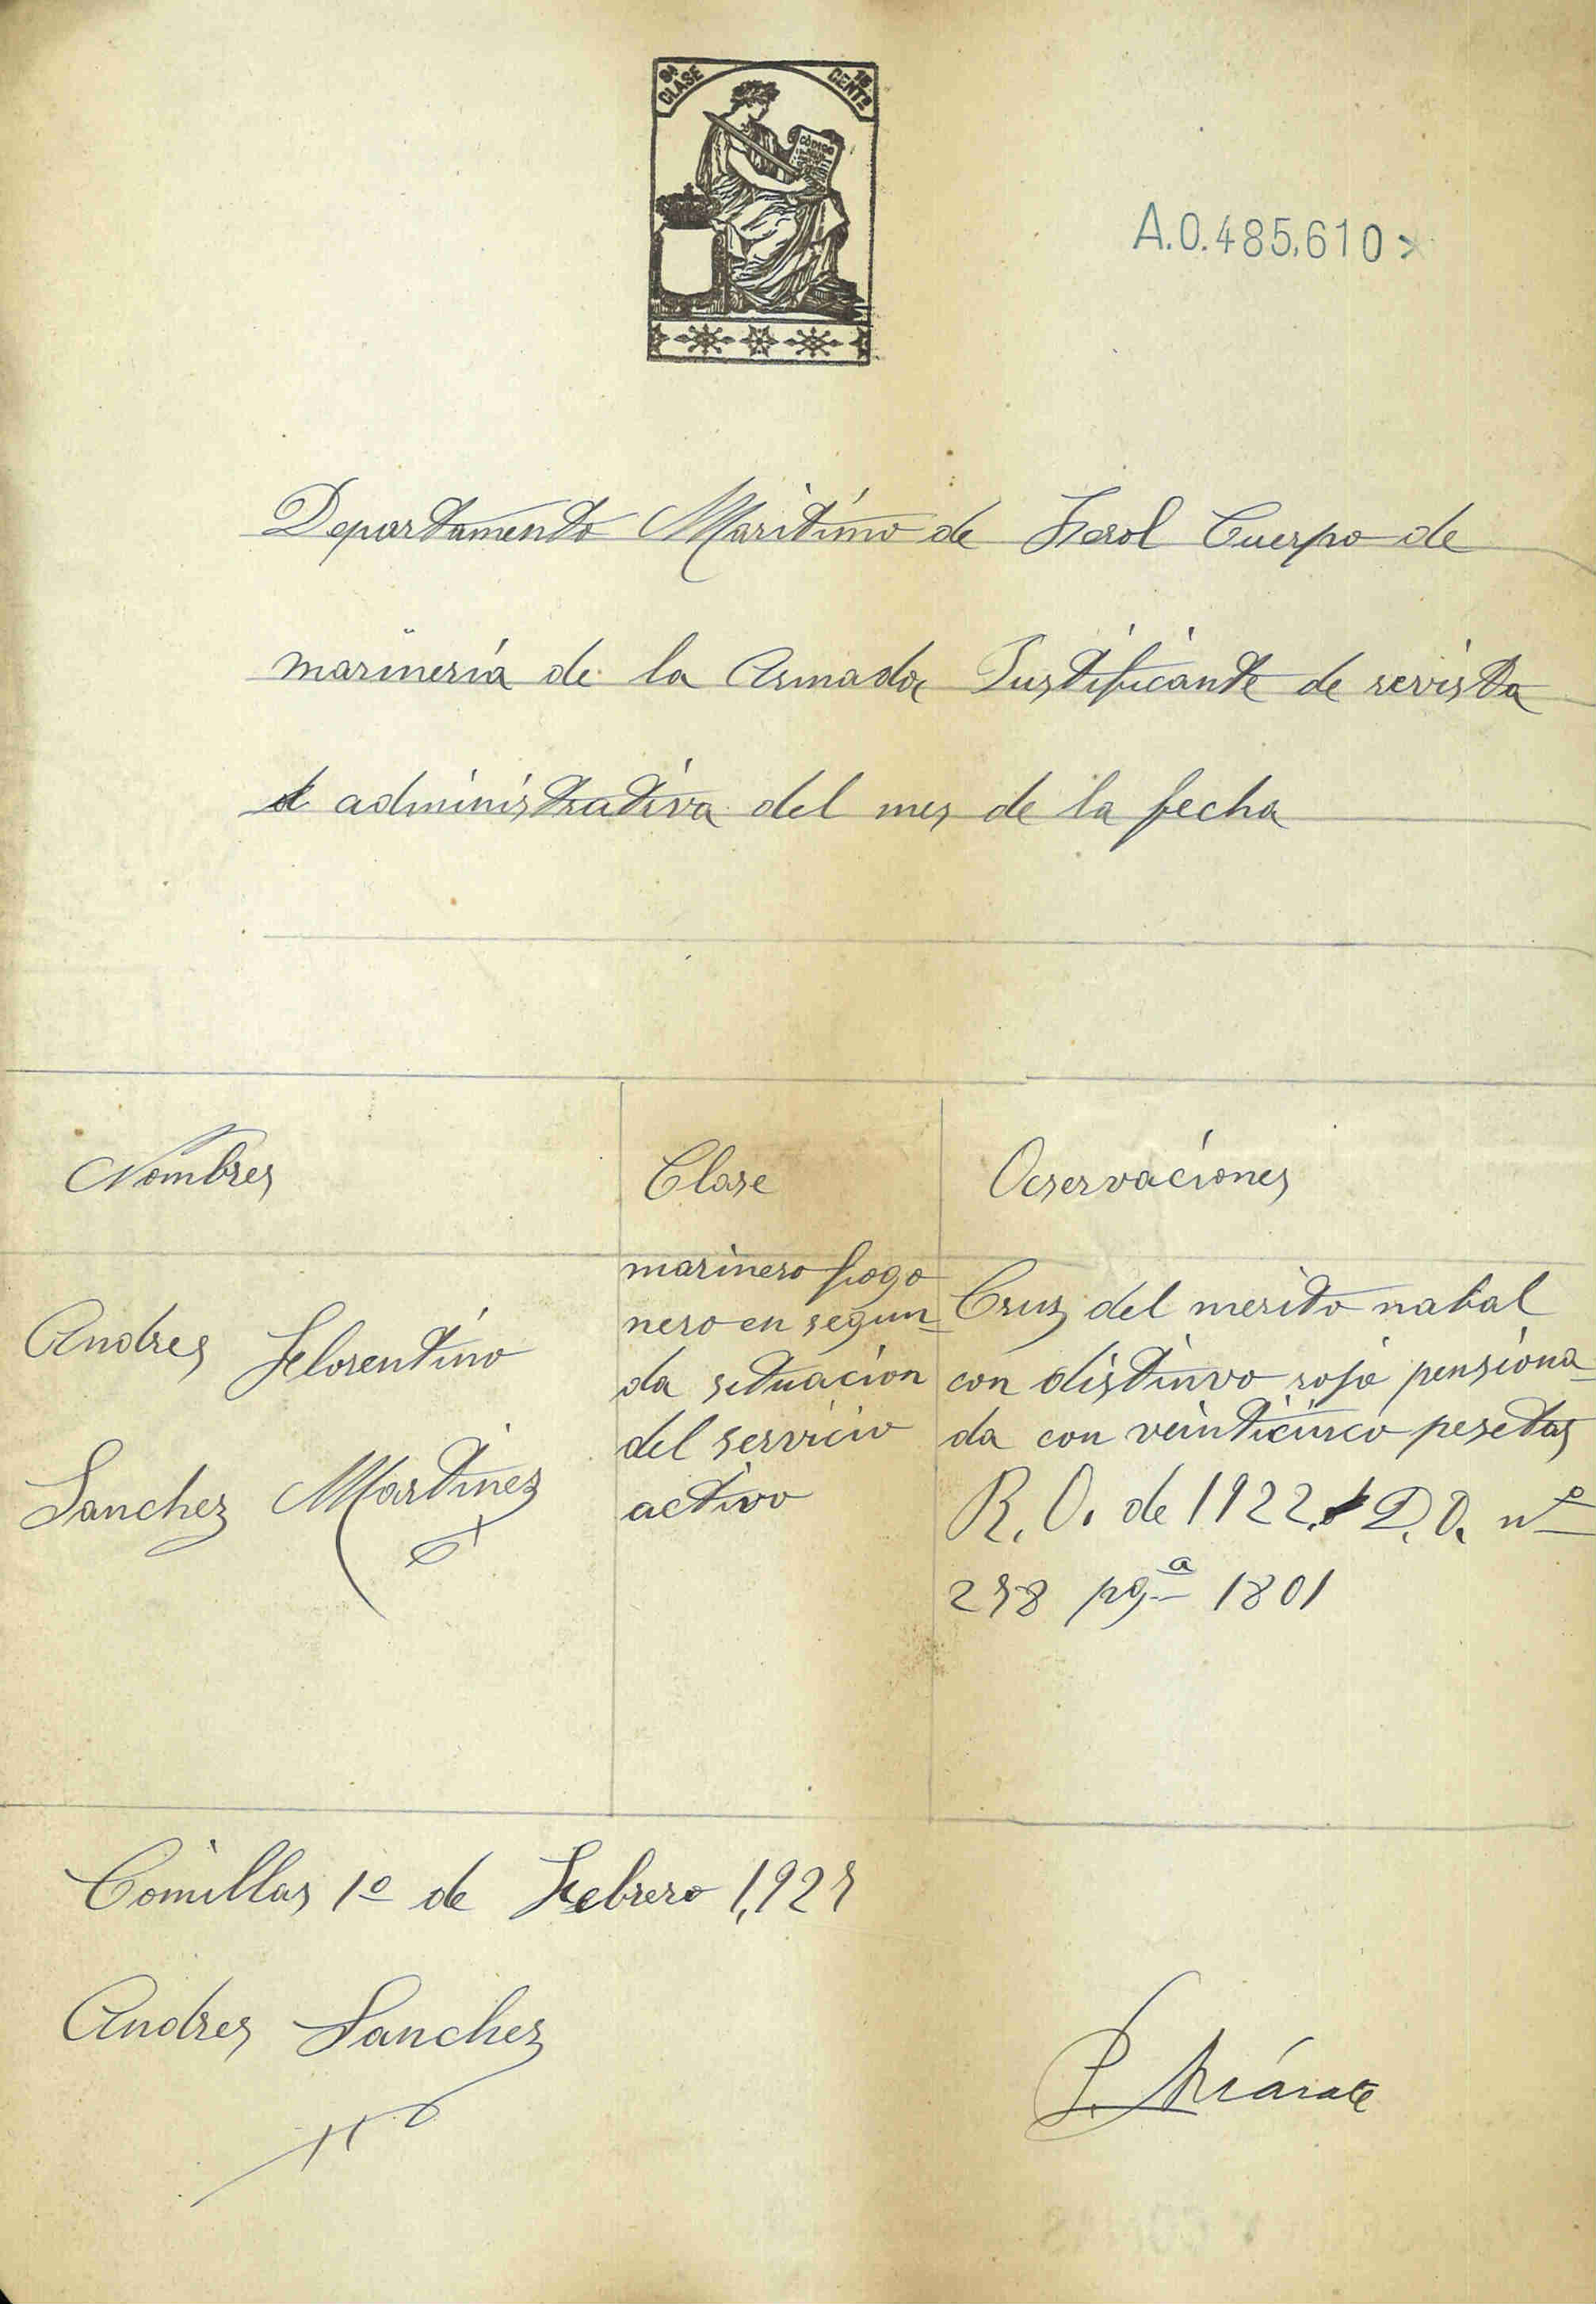 8ª CLASE
15 CENTS
CÓDIGO
A.0.485,610
Departamento Maritimo de Ferol Cuerpo de
marineria de la Armada Justificante de revista
administrativa del mes de la fecha
Nombres
Clase
Ocservaciones
Andres Florentino
Sanchez Martinez
marinero fogo
nero en segun
da situacion
del servicio
activo
Cruz del merito nabal
con distinvo rojo pensiona
da con veinticinco pesetas
R. O. de 1922. D.O. nº
258 pgª 1801
Comillas 1º de Febrero 1,925
Andres Sanchez